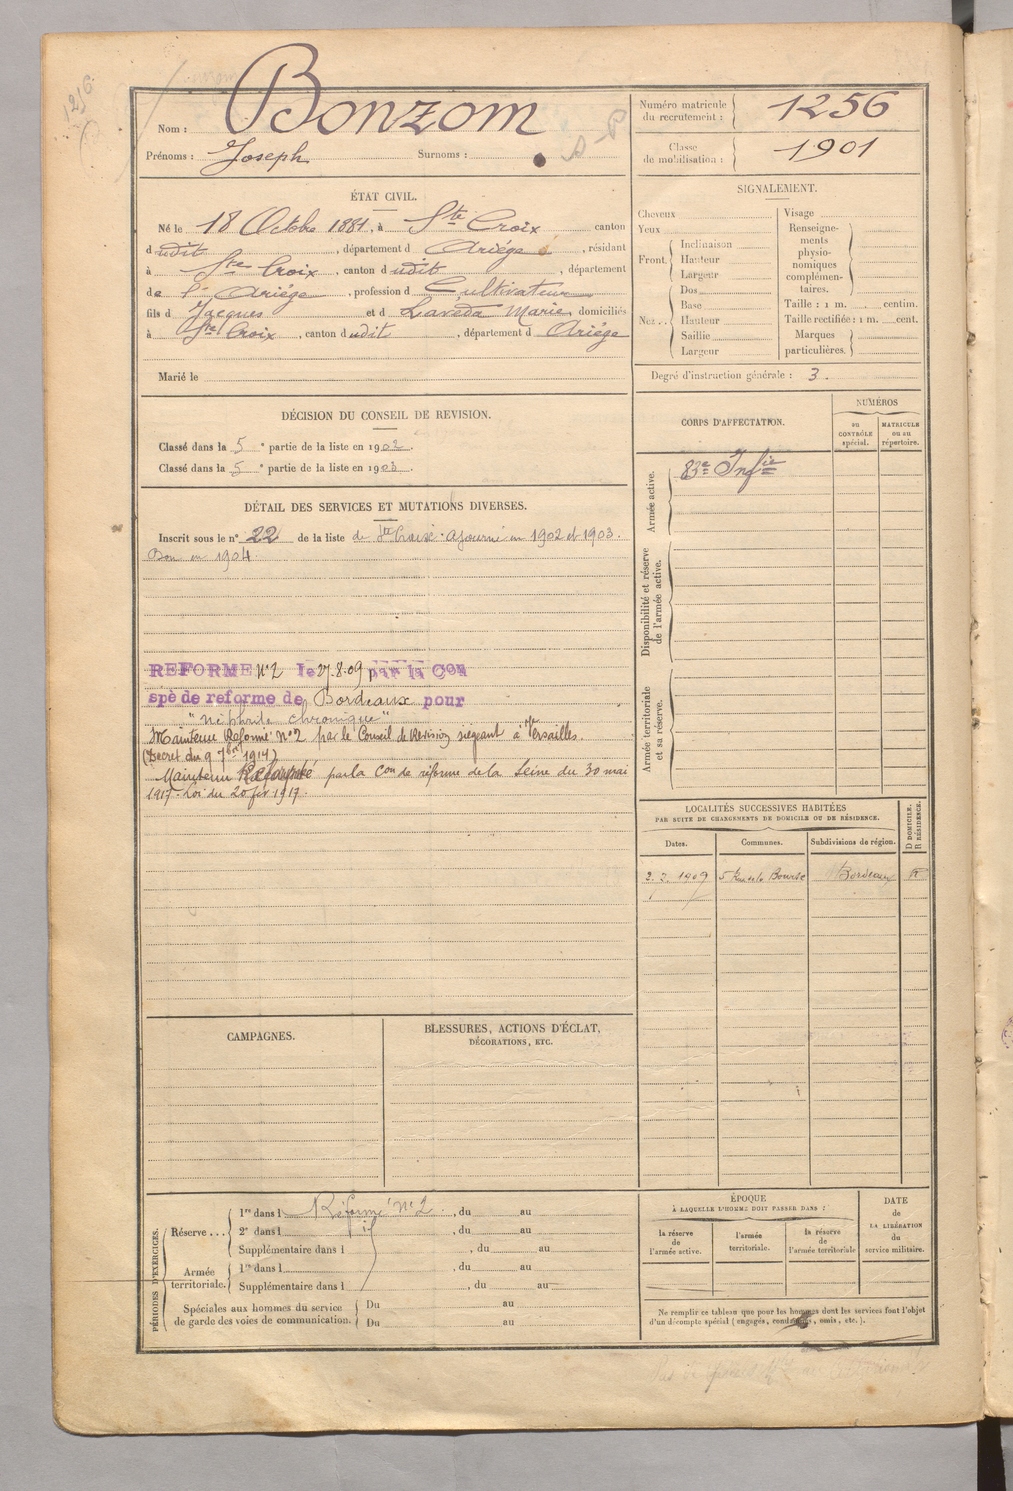 1256
Nom : Bonzom
Prénoms : Joseph Surnoms :
Numéro matricule du recrutement : 1256
Classe de mobilisation : 1901
ÉTAT CIVIL.
Né le 18 Octobre 1881, à Ste Croix canton
dudit, département d Ariège, résidant
à Ste Croix, canton dudit, département
de l'Ariège, profession d Cultivateur
fils d Jacques et d Laveda Marie, domiciliés
à Ste Croix, canton dudit, département d Ariège
Marié le
DÉCISION DU CONSEIL DE REVISION.
Classé dans la 5e partie de la liste en 1902.
Classé dans la 5e partie de la liste en 1903.
DÉTAIL DES SERVICES ET MUTATIONS DIVERSES.
Inscrit sous le n° 22 de la liste de Ste Croix. Ajourné en 1902 et 1903.
Bon en 1904.
REFORME N°2 le 27.8.09 par la Con
spé de reforme de Bordeaux pour
"néphrite chronique"
Maintenu Réformé n°2 par le Conseil de Revision siégeant à Versailles
(Décret du 9 7bre 1914)
Maintenu Réformé par la Con de réforme de la Seine du 30 mai
1917. Loi du 20 fév 1917.
CAMPAGNES.
BLESSURES, ACTIONS D'ÉCLAT,
DÉCORATIONS, ETC.
PÉRIODES D'EXERCICES.
Réserve...
1re dans l Réformé n°2, du au
2e dans l , du au
Supplémentaire dans l , du au
Armée territoriale.
1re dans l , du au
Supplémentaire dans l , du au
Spéciales aux hommes du service
de garde des voies de communication.
Du au
Du au
SIGNALEMENT.
Cheveux
Yeux
Front.
Inclinaison
Hauteur
Largeur
Nez..
Dos
Base
Hauteur
Saillie
Largeur
Visage
Renseigne-
ments
physio-
nomiques
complémen-
taires.
Taille : 1 m. centim.
Taille rectifiée : 1 m. cent.
Marques
particulières.
Degré d'instruction générale : 3.
CORPS D'AFFECTATION.
NUMÉROS
au
CONTRÔLE
spécial.
MATRICULE
ou au
répertoire.
Armée active.
83e Infie
Disponibilité et réserve
de l'armée active.
Armée territoriale
et sa réserve.
LOCALITÉS SUCCESSIVES HABITÉES
PAR SUITE DE CHANGEMENTS DE DOMICILE OU DE RÉSIDENCE.
D DOMICILE.
R RÉSIDENCE.
Dates. Communes. Subdivisions de région.
2.2.1909 5 Rue de la Bourse Bordeaux R
ÉPOQUE
À LAQUELLE L'HOMME DOIT PASSER DANS :
la réserve
de
l'armée active.
l'armée
territoriale.
la réserve
de
l'armée territoriale
DATE
de
LA LIBÉRATION
du
service militaire.
Ne remplir ce tableau que pour les hommes dont les services font l'objet
d'un décompte spécial (engagés, condamnés, omis, etc.).